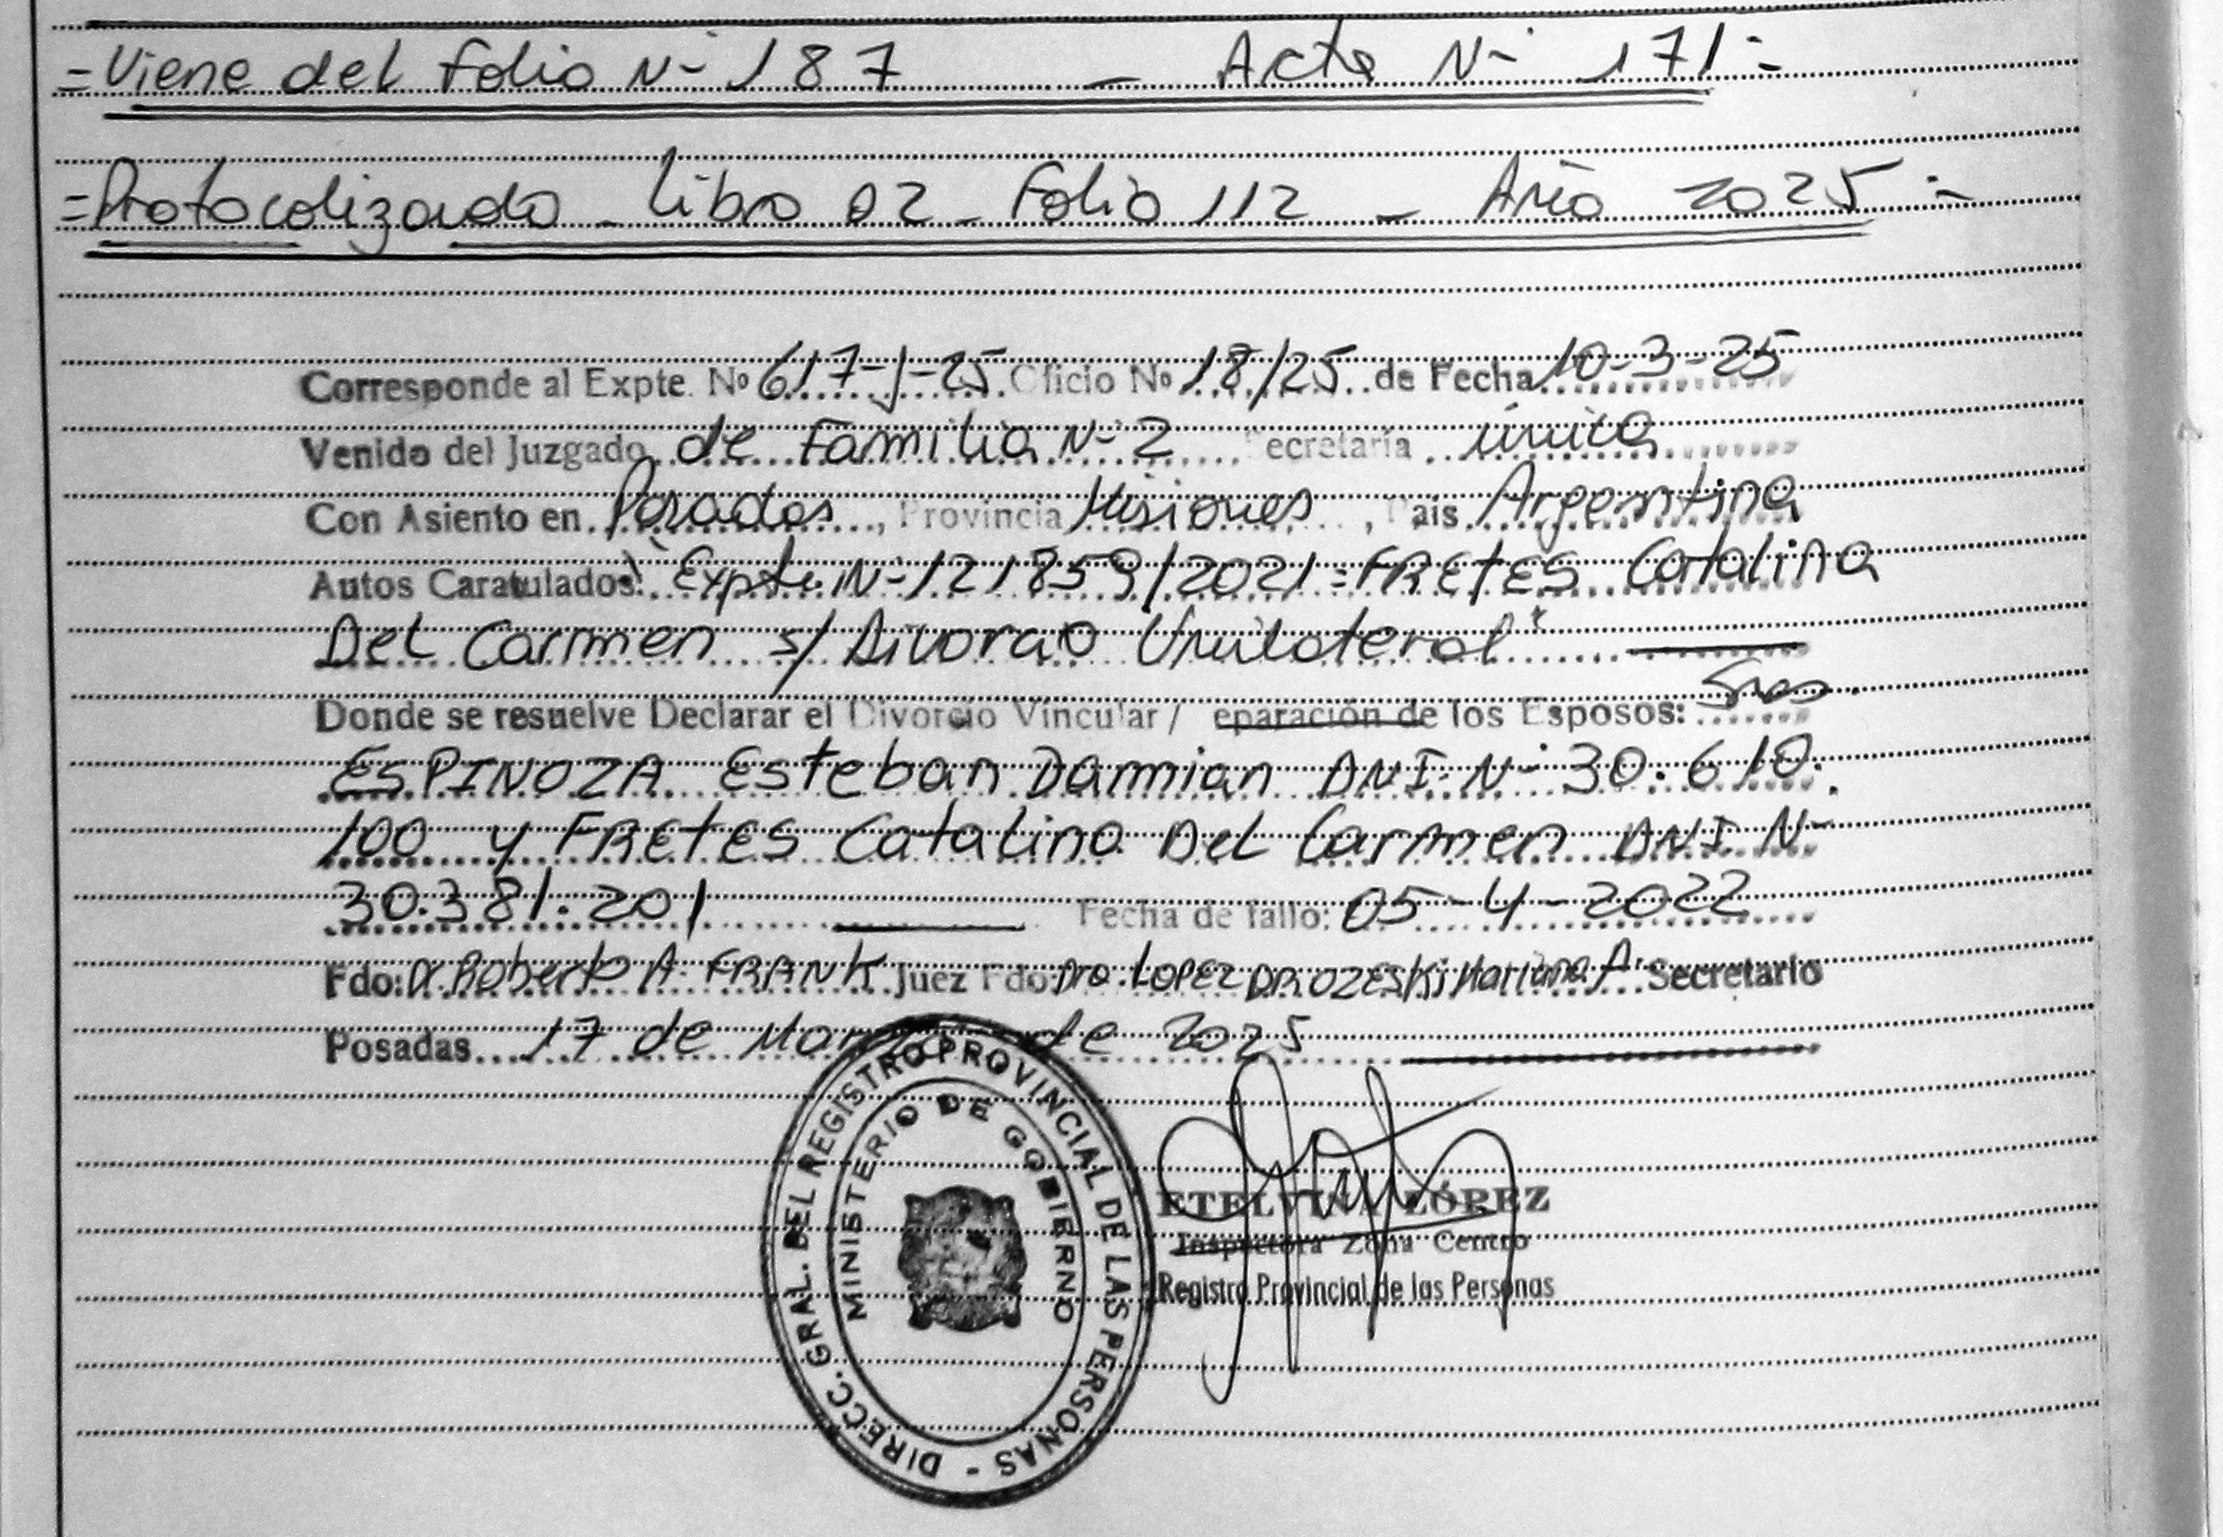 =Viene del Folio N- 187 - Acta N- 171=
=Protocolizado - Libro 02 - Folio 112 - Año 2025=
Corresponde al Expte. Nº 617-J-25 Oficio Nº 18/25 de Fecha 10-3-25
Venido del Juzgado de Familia N-2 Secretaría única
Con Asiento en Posadas, Provincia Misiones, País Argentina
Autos Caratulados: "Expte. N- 121859/2021 = FRETES Catalina
Del Carmen s/ Divorcio Unilateral"
Donde se resuelve Declarar el Divorcio Vincular / eparación de los Esposos: Sres
ESPINOZA Esteban Damian DNI N- 30.610.
100 y FRETES Catalina Del Carmen DNI N-
30.381.201 Fecha de fallo: 05-4-2022
Fdo: Dr. Roberto A. FRANK Juez Fdo: Dra. LOPEZ DROZESKi Mariana A. Secretario
Posadas 17 de Marzo de 2025
DIRECC. GRAL. DEL REGISTRO PROVINCIAL DE LAS PERSONAS -
MINISTERIO DE GOBIERNO
ETELVINA LÓPEZ
Inspectora Zona Centro
Registro Provincial de las Personas